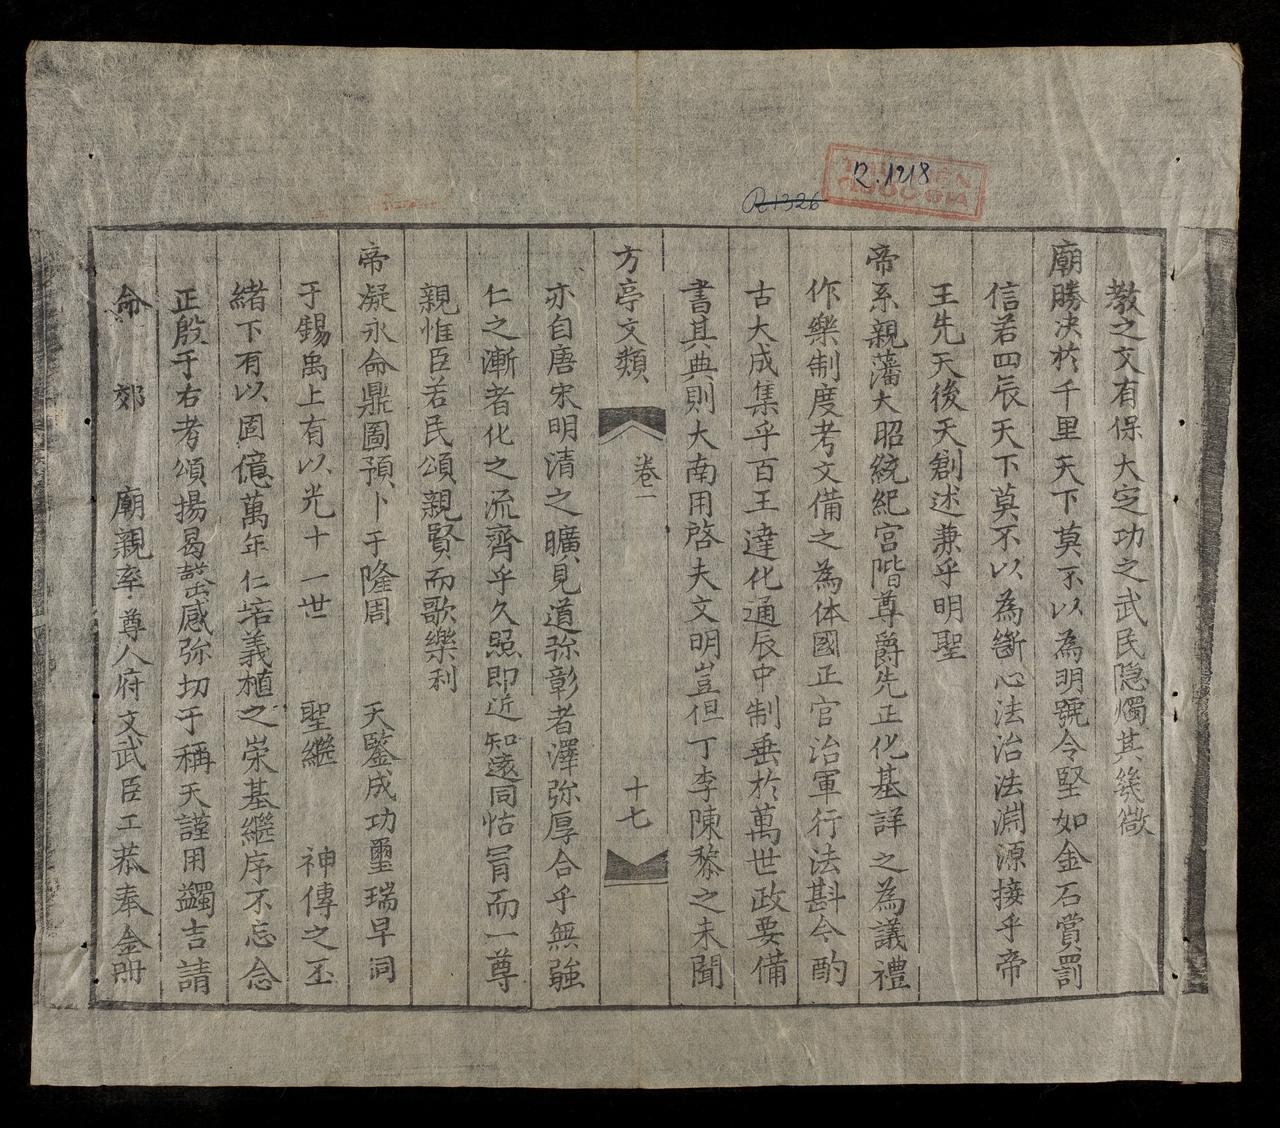 R.1218
THƯ VIỆN
QUỐC GIA
R1326
教之文有保大定功之武民隐燭其幾微
廟勝决於千里天下莫不以為明號令堅如金石賞罰
信若四辰天下莫不以為斷心法治法淵源接乎帝
王先天後天創述兼乎明聖
帝系親藩大昭統紀宮階尊爵先正化基詳之為議禮
作樂制度考文備之為体國正官治軍行法斟今酌
古大成集乎百王達化通辰中制垂於萬世政要備
書其典則大南用啓夫文明豈但丁李陳黎之未聞
方亭文類
卷一
十七
亦自唐宋明清之曠見道弥彰者澤弥厚合乎無強
仁之漸者化之流齊乎久照即近知遠同怙冐而一尊
親惟臣若民頌親賢而歌樂利
帝凝永命鼎圖預卜于隆周 天鑒成功璽瑞早洞
于錫禹上有以光十一世 聖繼 神傳之丕
緒下有以固億萬年仁培義植之崇基繼序不忘念
正殷于右考頌揚曷罄感弥切于稱天謹用蠲吉請
命 郊 廟親率尊人府文武臣工恭奉金冊